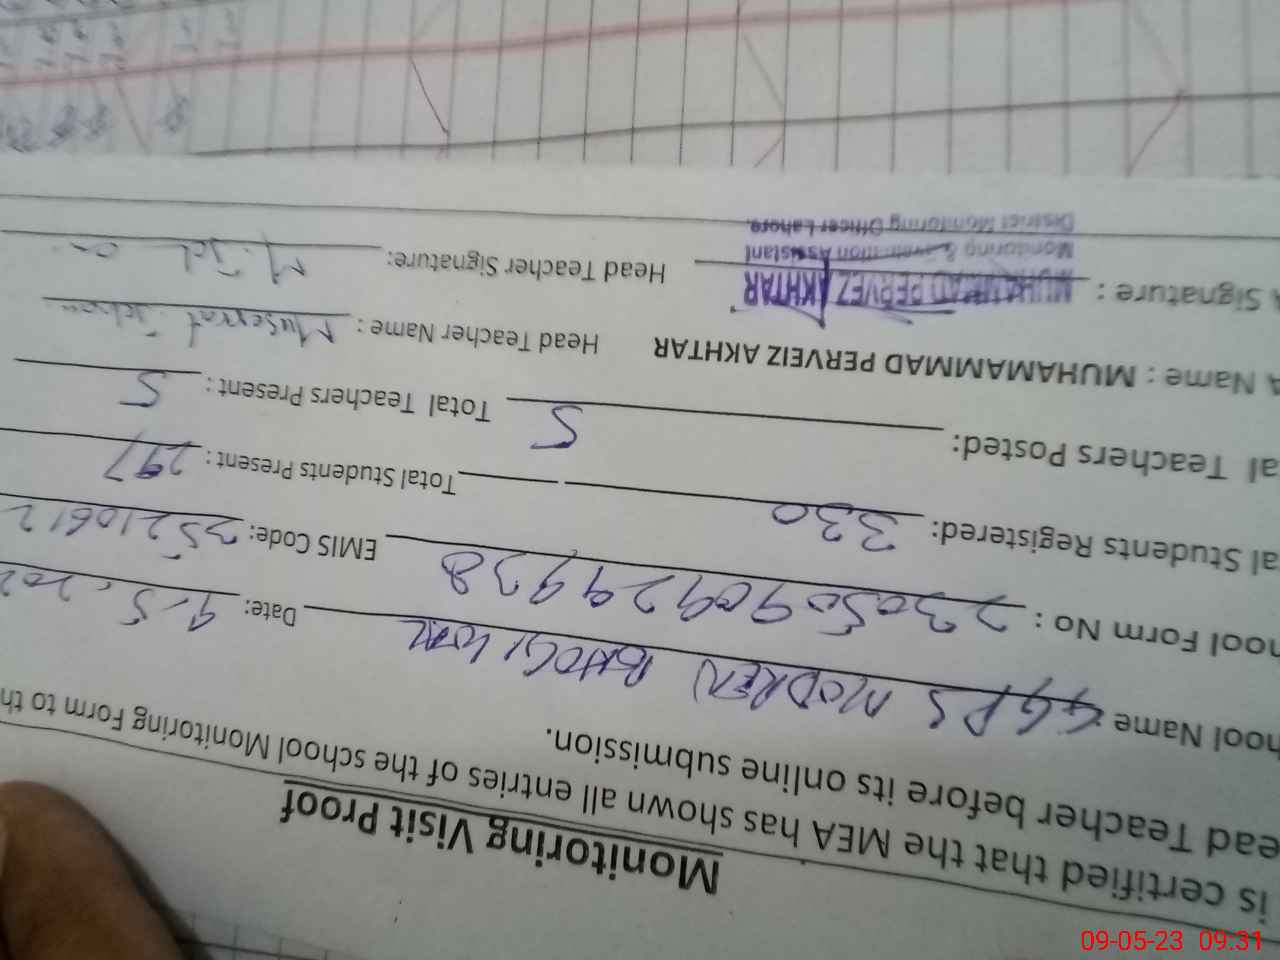 Monitoring Visit Proof
is certified that the MEA has shown all entries of the school Monitoring Form to th
ead Teacher before its online submission.
hool Name : GGPS MODREN BHOGIWAL Date: 9-5-202
hool Form No : 2305090929938 EMIS Code: 35210612
al Students Registered: 330 Total Students Present : 297
al Teachers Posted: 5 Total Teachers Present : 5
A Name : MUHAMMAD PERVEIZ AKHTAR Head Teacher Name : Muserrat
A Signature : MUHAMMAD PERVEZ AKHTAR Head Teacher Signature:
Monitoring & Evaluation Assistant
District Monitoring Officer Lahore.
09-05-23 09:31